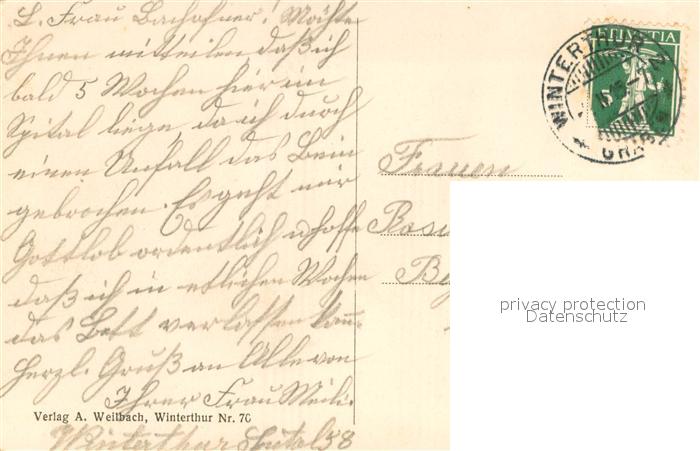 L. Frau Bachofner! Möchte
Ihnen mitteilen, daß ich
bald 5 Wochen hier im
Spital liege, da ich durch
einen Unfall das Bein
gebrochen. Es geht mir
Gottlob ordentlich u. hoffe
daß ich in etlichen Wochen
das Bett verlassen kann.
Herzl. Gruß an Alle von
Ihrer Frau Meili.
Verlag A. Weilbach, Winterthur Nr. 70
Winterthur Spital 58
HELVETIA
WINTERTHUR 2
Frauen
privacy protection
Datenschutz